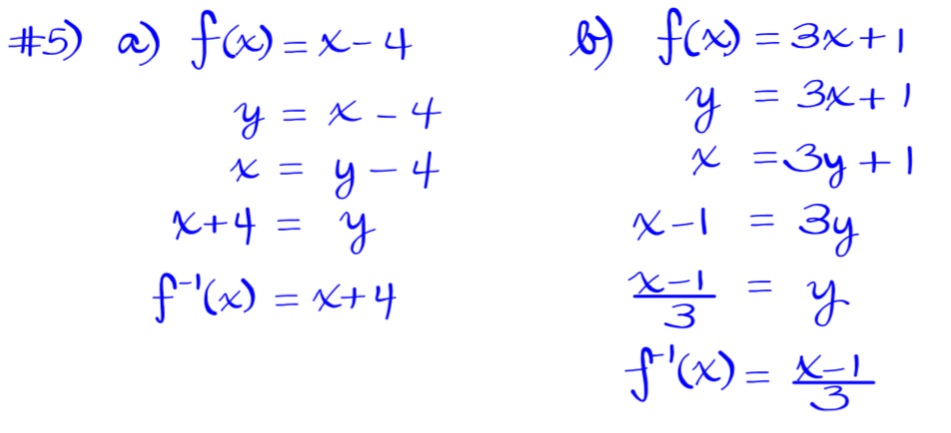 #5) a) f(x) = x - 4
y = x - 4
x = y - 4
x + 4 = y
f⁻¹(x) = x + 4
b) f(x) = 3x + 1
y = 3x + 1
x = 3y + 1
x - 1 = 3y
(x - 1)/3 = y
f⁻¹(x) = (x - 1)/3